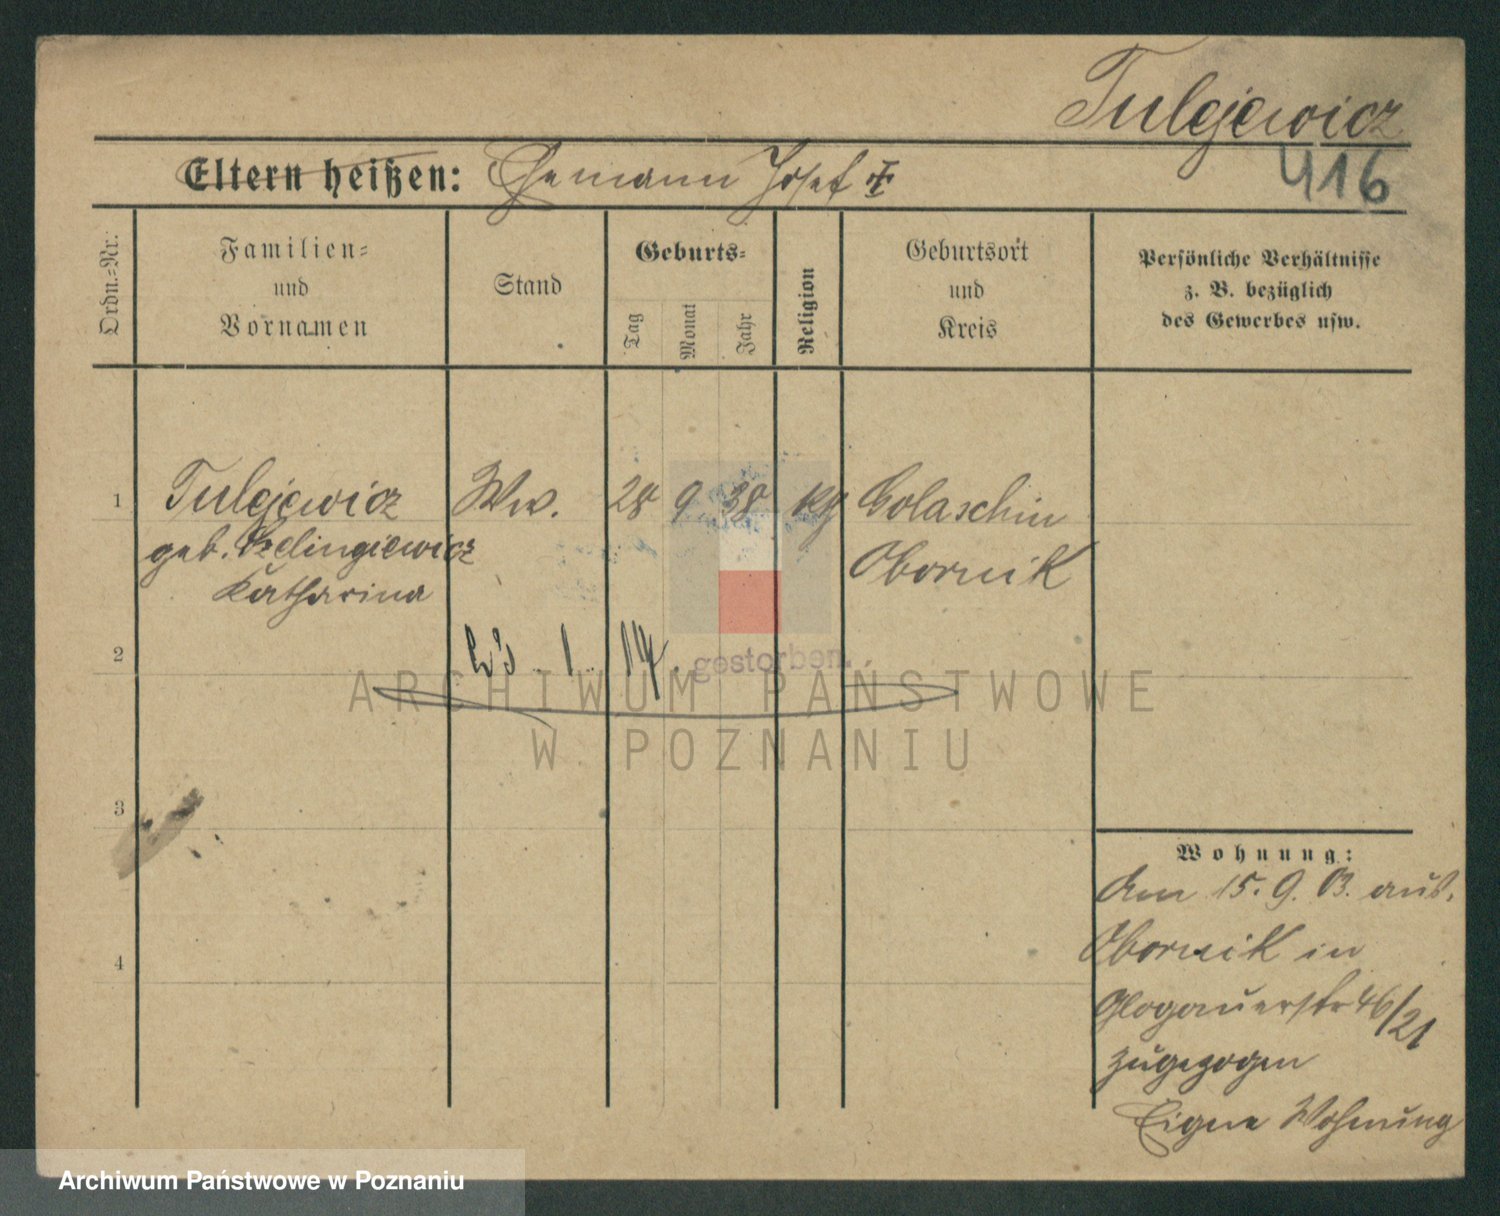 Tulejewicz
416
Eltern heißen: Ehemann Josef ‡
Ordn.-Nr.
Familien-
und
Vornamen
Stand
Geburts-
Tag
Monat
Jahr
Religion
Geburtsort
und
Kreis
Persönliche Verhältnisse
z. B. bezüglich
des Gewerbes usw.
1 Tulejewicz Ww. 28 9 38 kg Golaschin
geb. Szelingiewicz Obornik
Katharina
2
1. 14. gestorben.
ARCHIWUM PAŃSTWOWE
W POZNANIU
3
4
Wohnung:
Am 15. 9. 03. aus
Obornik in
Glogauerstr 46/21
zugezogen
Eigene Wohnung
Archiwum Państwowe w Poznaniu